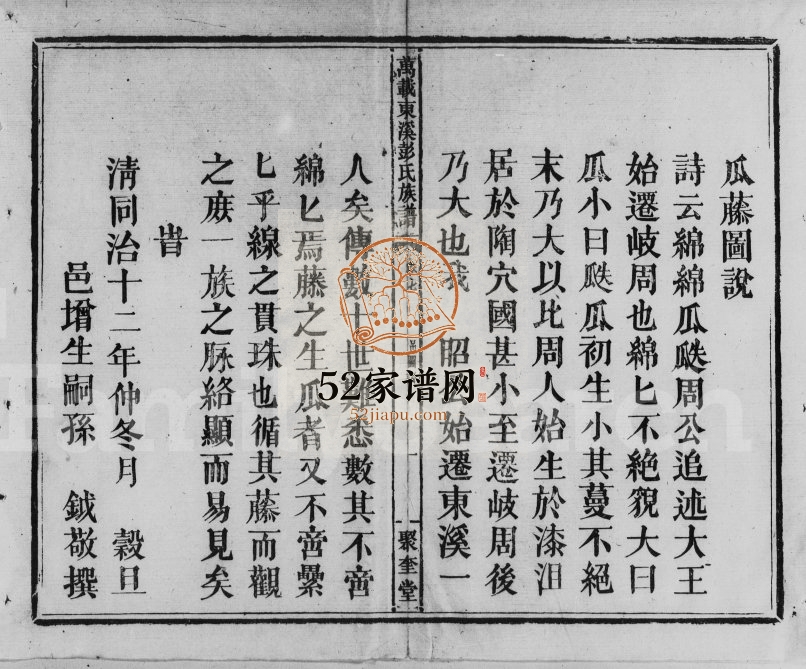 瓜藤圖說
詩云綿綿瓜瓞周公追述大王
始遷岐周也綿匕不絕貌大曰
瓜小曰瓞瓜初生小其蔓不絕
末乃大以比周人始生於漆沮
居於陶穴國甚小至遷岐周後
乃大也我 昭 始遷東溪一
萬載東溪彭氏族譜
聚奎堂
人矣傳數十世難悉數其不啻
綿匕焉藤之生瓜者又不啻纍
匕乎線之貫珠也循其藤而觀
之庶一族之脉絡顯而易見矣
旹
淸同治十二年仲冬月 穀旦
邑增生嗣孫 鉞敬撰
52家谱网
52jiapu.com